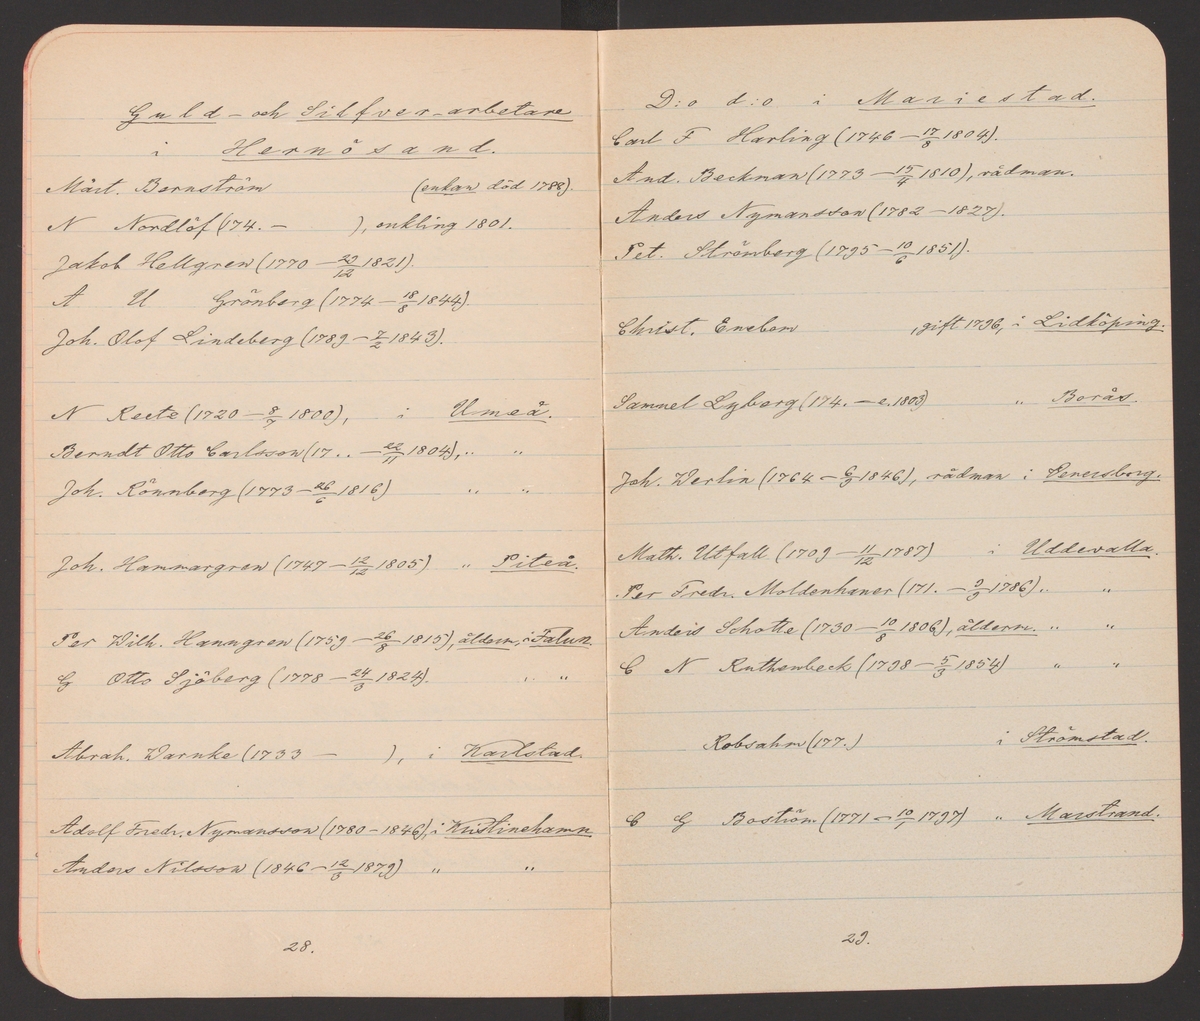 Guld- och Silfver-arbetare
i Hernösand.
Mårt. Bernström (enkan död 1788).
N Nordlöf (174. – ), enkling 1801.
Jakob Hellgren (1770 – 29/12 1821).
A U Grönberg (1774 – 18/8 1844).
Joh. Olof Lindeberg (1789 – 7/2 1843).
N Recte (1720 – 8/7 1800), i Umeå.
Berndt Otto Carlsson (17.. – 22/11 1804), " "
Joh. Rönnberg (1773 – 26/6 1816) " "
Joh. Hammargren (1747 – 12/12 1805) " Piteå.
Per Wilh. Hanngren (1759 – 26/8 1815), ålderm., i Falun.
G Otto Sjöberg (1778 – 24/3 1824). " "
Abrah. Warnke (1733 – ), i Karlstad.
Adolf Fredr. Nymansson (1780 – 1846), i Kristinehamn
Anders Nilsson (1846 – 12/3 1879) " "
28.
D:o d:o i Mariestad.
Carl F Harling (1746 – 17/8 1804).
And. Beckman (1773 – 15/4 1810), rådman.
Anders Nymansson (1782 – 1827).
Pet. Strönberg (1795 – 10/6 1851).
Christ. Enebom , gift 1796, i Lidköping.
Samuel Lyberg (174. – c. 1803) " Borås.
Joh. Werlin (1764 – 6/9 1846), rådman i Venersborg.
Math. Utfall (1709 – 11/12 1787) i Uddevalla.
Per Fredr. Moldenhauer (171. – 9/9 1786) " "
Anders Schotte (1730 – 10/8 1806), ålderm. " "
C N Ruthenbeck (1798 – 5/3 1854) " "
Robsahm (177.) i Strömstad.
C G Boström (1771 – 10/1 1797) " Marstrand.
29.